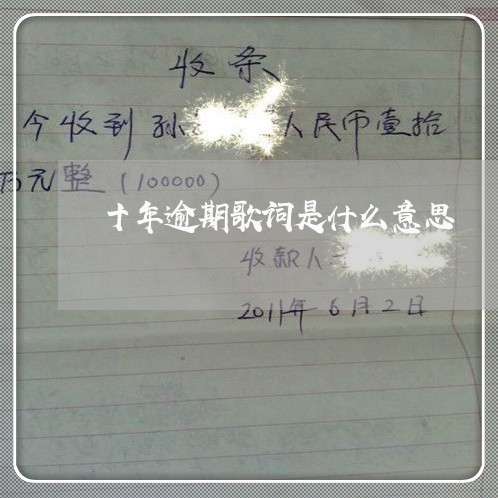 收条
今收到孙 人民币壹拾
万元整（100000）
十年逾期歌词是什么意思
收款人
2011年6月2日